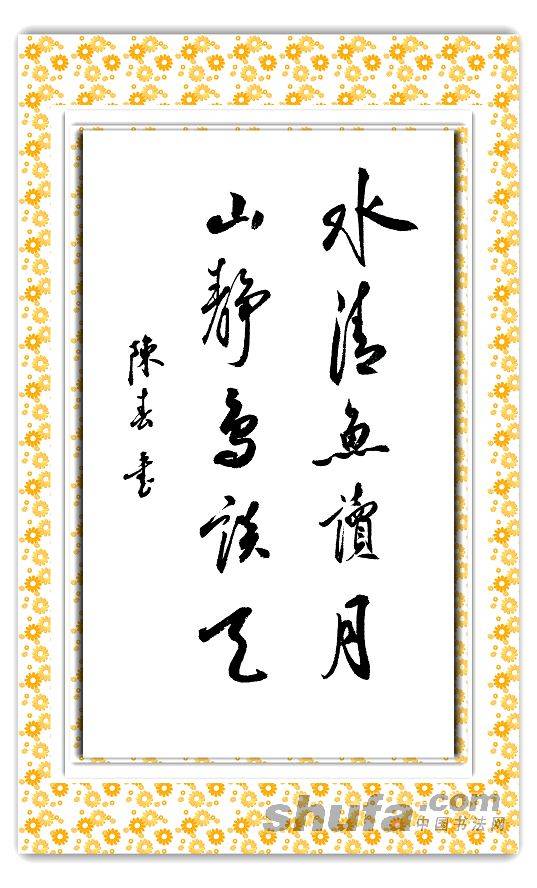 水清魚讀月
山靜鳥談天
陳春書
shufa.com
中国书法网